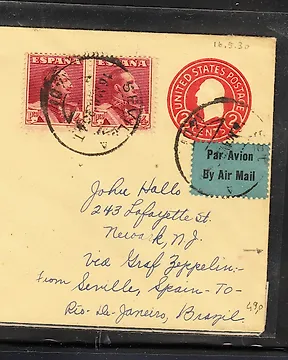 18.5.30
ESPAÑA ESPAÑA
UNITED STATES POSTAGE
2 CENTS 2
Par Avion
By Air Mail
John Hallo
243 Lafayette st.
Newark, N.J.
via Graf Zeppelin-
From Seville, Spain - To-
Rio-De-Janeiro, Brazil.